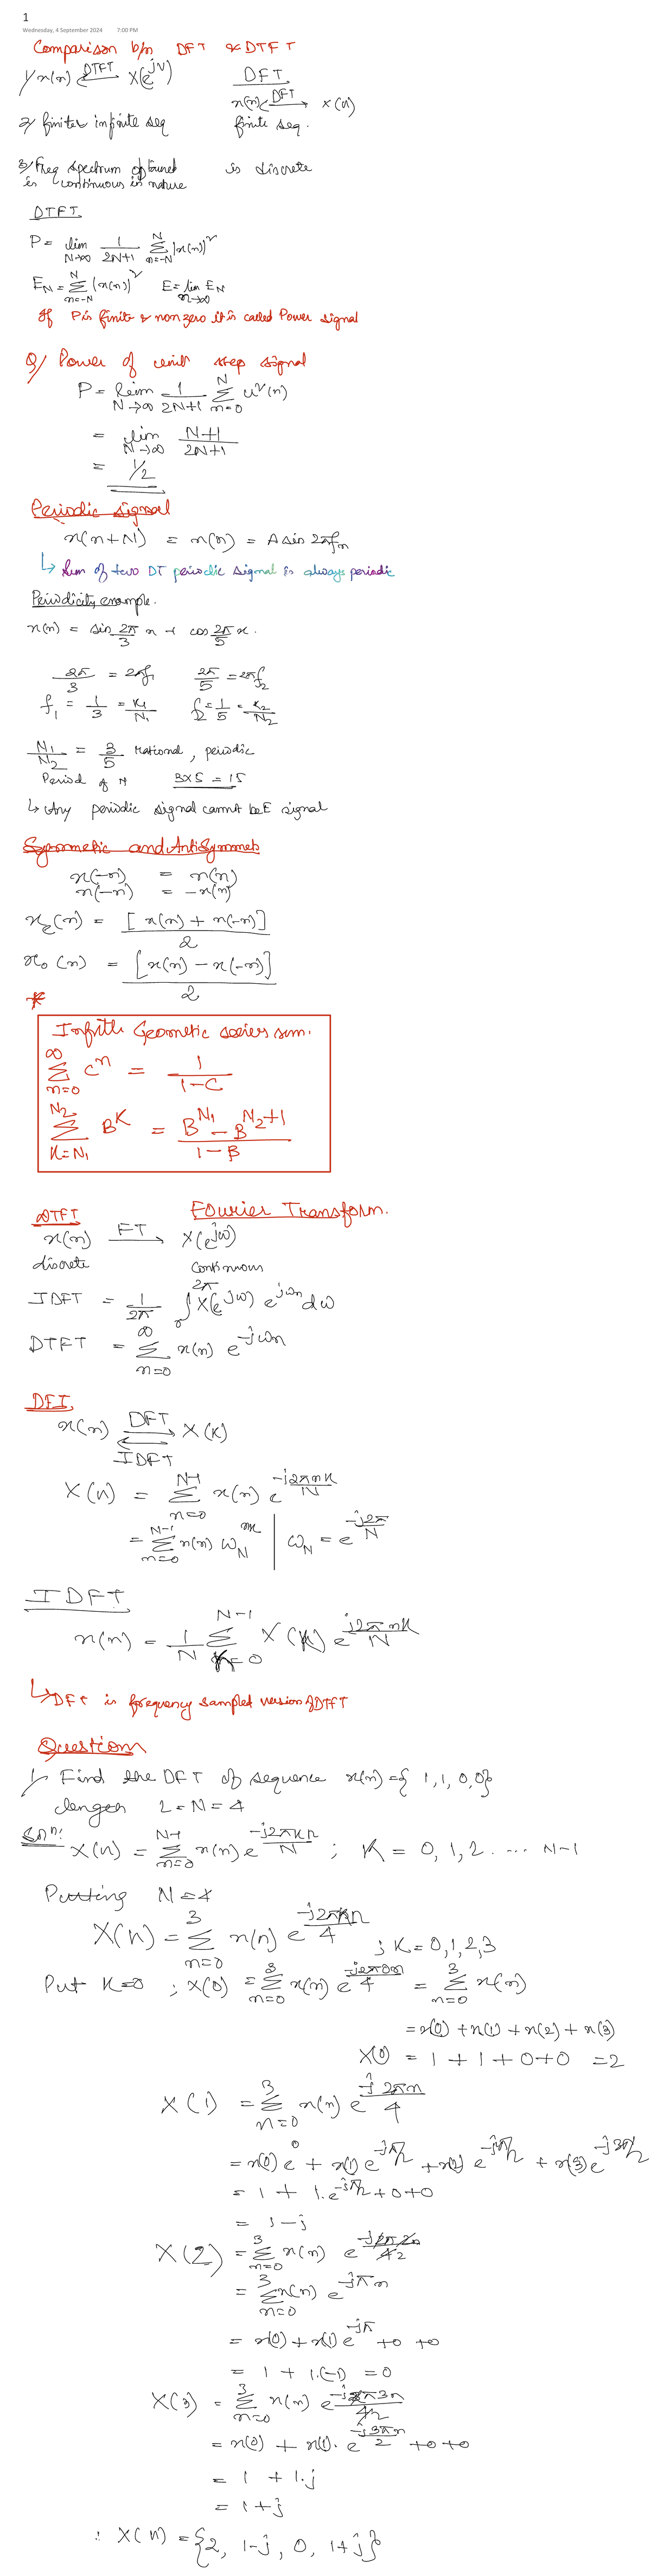 1
Wednesday, 4 September 2024 7:00 PM
Comparison b/n DFT & DTFT
1/ x(n) <-DTFT-> X(e^jω) DFT
x(n) <-DFT-> x(k)
2/ finite infinite seq finite seq.
3/ Freq spectrum obtained is discrete
is continuous in nature
DTFT
P = lim N→∞ 1/(2N+1) Σ_{n=-N}^{N} |x(n)|²
E_N = Σ_{n=-N}^{N} |x(n)|² E = lim n→∞ E_N
If P is finite & nonzero it is called Power signal
Q/ Power of unit step signal
P = lim N→∞ 1/(2N+1) Σ_{n=0}^{N} u²(n)
= lim N→∞ (N+1)/(2N+1)
= 1/2
Periodic signal
x(n+N) = x(n) = A sin 2πfn
↳ Sum of two DT periodic signal is always periodic
Periodicity example.
x(n) = sin 2π/3 n + cos 2π/5 n.
2π/3 = 2πf₁ 2π/5 = 2πf₂
f₁ = 1/3 = K₁/N₁ f₂ = 1/5 = K₂/N₂
N₁/N₂ = 3/5 rational, periodic
Period of N 3×5 = 15
↳ Any periodic signal cannot be E signal
Symmetic and AntiSymmets
x(-n) = x(n)
x(-n) = -x(n)
x_e(n) = [x(n) + x(-n)]/2
x_o(n) = [x(n) - x(-n)]/2
*
Infinite Geometic series sum.
Σ_{n=0}^{∞} C^n = 1/(1-C)
Σ_{K=N₁}^{N₂} B^K = (B^{N₁} - B^{N₂+1})/(1-B)
DTFT Fourier Transform.
x(n) FT→ X(e^jω)
discrete continuous
IDFT = 1/2π ∫_0^{2π} X(e^jω) e^{jωn} dω
DTFT = Σ_{n=0}^{∞} x(n) e^{-jωn}
DFT
x(n) DFT ⇄ IDFT X(K)
X(k) = Σ_{n=0}^{N-1} x(n) e^{-j2πnk/N}
= Σ_{n=0}^{N-1} x(n) ω_N^{nk} | ω_N = e^{-j2π/N}
IDFT
x(n) = 1/N Σ_{K=0}^{N-1} X(K) e^{j2πnK/N}
↳ DFT is frequency sampled version of DTFT
Question
1/ Find the DFT of sequence x(n) = {1,1,0,0}
length L = N = 4
Soln: X(k) = Σ_{n=0}^{N-1} x(n) e^{-j2πkn/N} ; K = 0, 1, 2 .... N-1
Putting N=4
X(k) = Σ_{n=0}^{3} x(n) e^{-j2πkn/4} ; K = 0,1,2,3
Put K=0 ; X(0) = Σ_{n=0}^{3} x(n) e^{-j2π0n/4} = Σ_{n=0}^{3} x(n)
= x(0) + x(1) + x(2) + x(3)
X(0) = 1 + 1 + 0+0 = 2
X(1) = Σ_{n=0}^{3} x(n) e^{-j2πn/4}
= x(0) e^0 + x(1) e^{-jπ/2} + x(2) e^{-jπ/2} + x(3) e^{-j3π/2}
= 1 + 1.e^{-jπ/2} + 0+0
= 1-j
X(2) = Σ_{n=0}^{3} x(n) e^{-j2π2n/42}
= Σ_{n=0}^{3} x(n) e^{-jπn}
= x(0) + x(1) e^{-jπ} +0 +0
= 1 + 1.(-1) = 0
X(3) = Σ_{n=0}^{3} x(n) e^{-j2π3n/42}
= x(0) + x(1). e^{-j3πn/2} +0 +0
= 1 + 1.j
= 1+j
∴ X(k) = {2, 1-j, 0, 1+j}